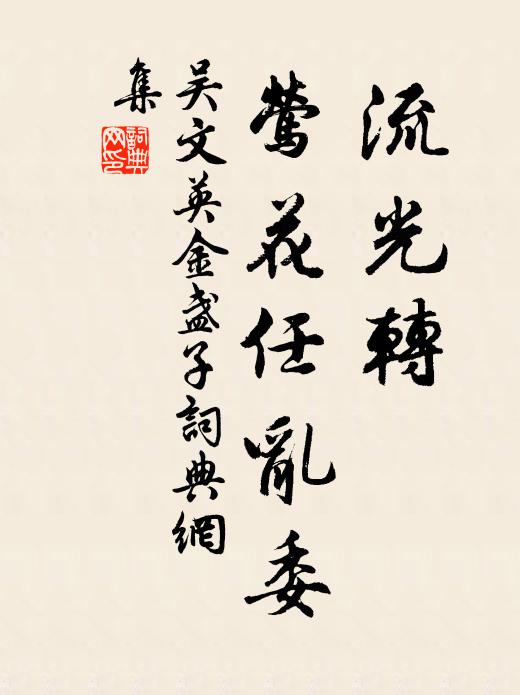 流光轉
鶯花任亂委
吴文英金盞子詞典網
集
詞典网印